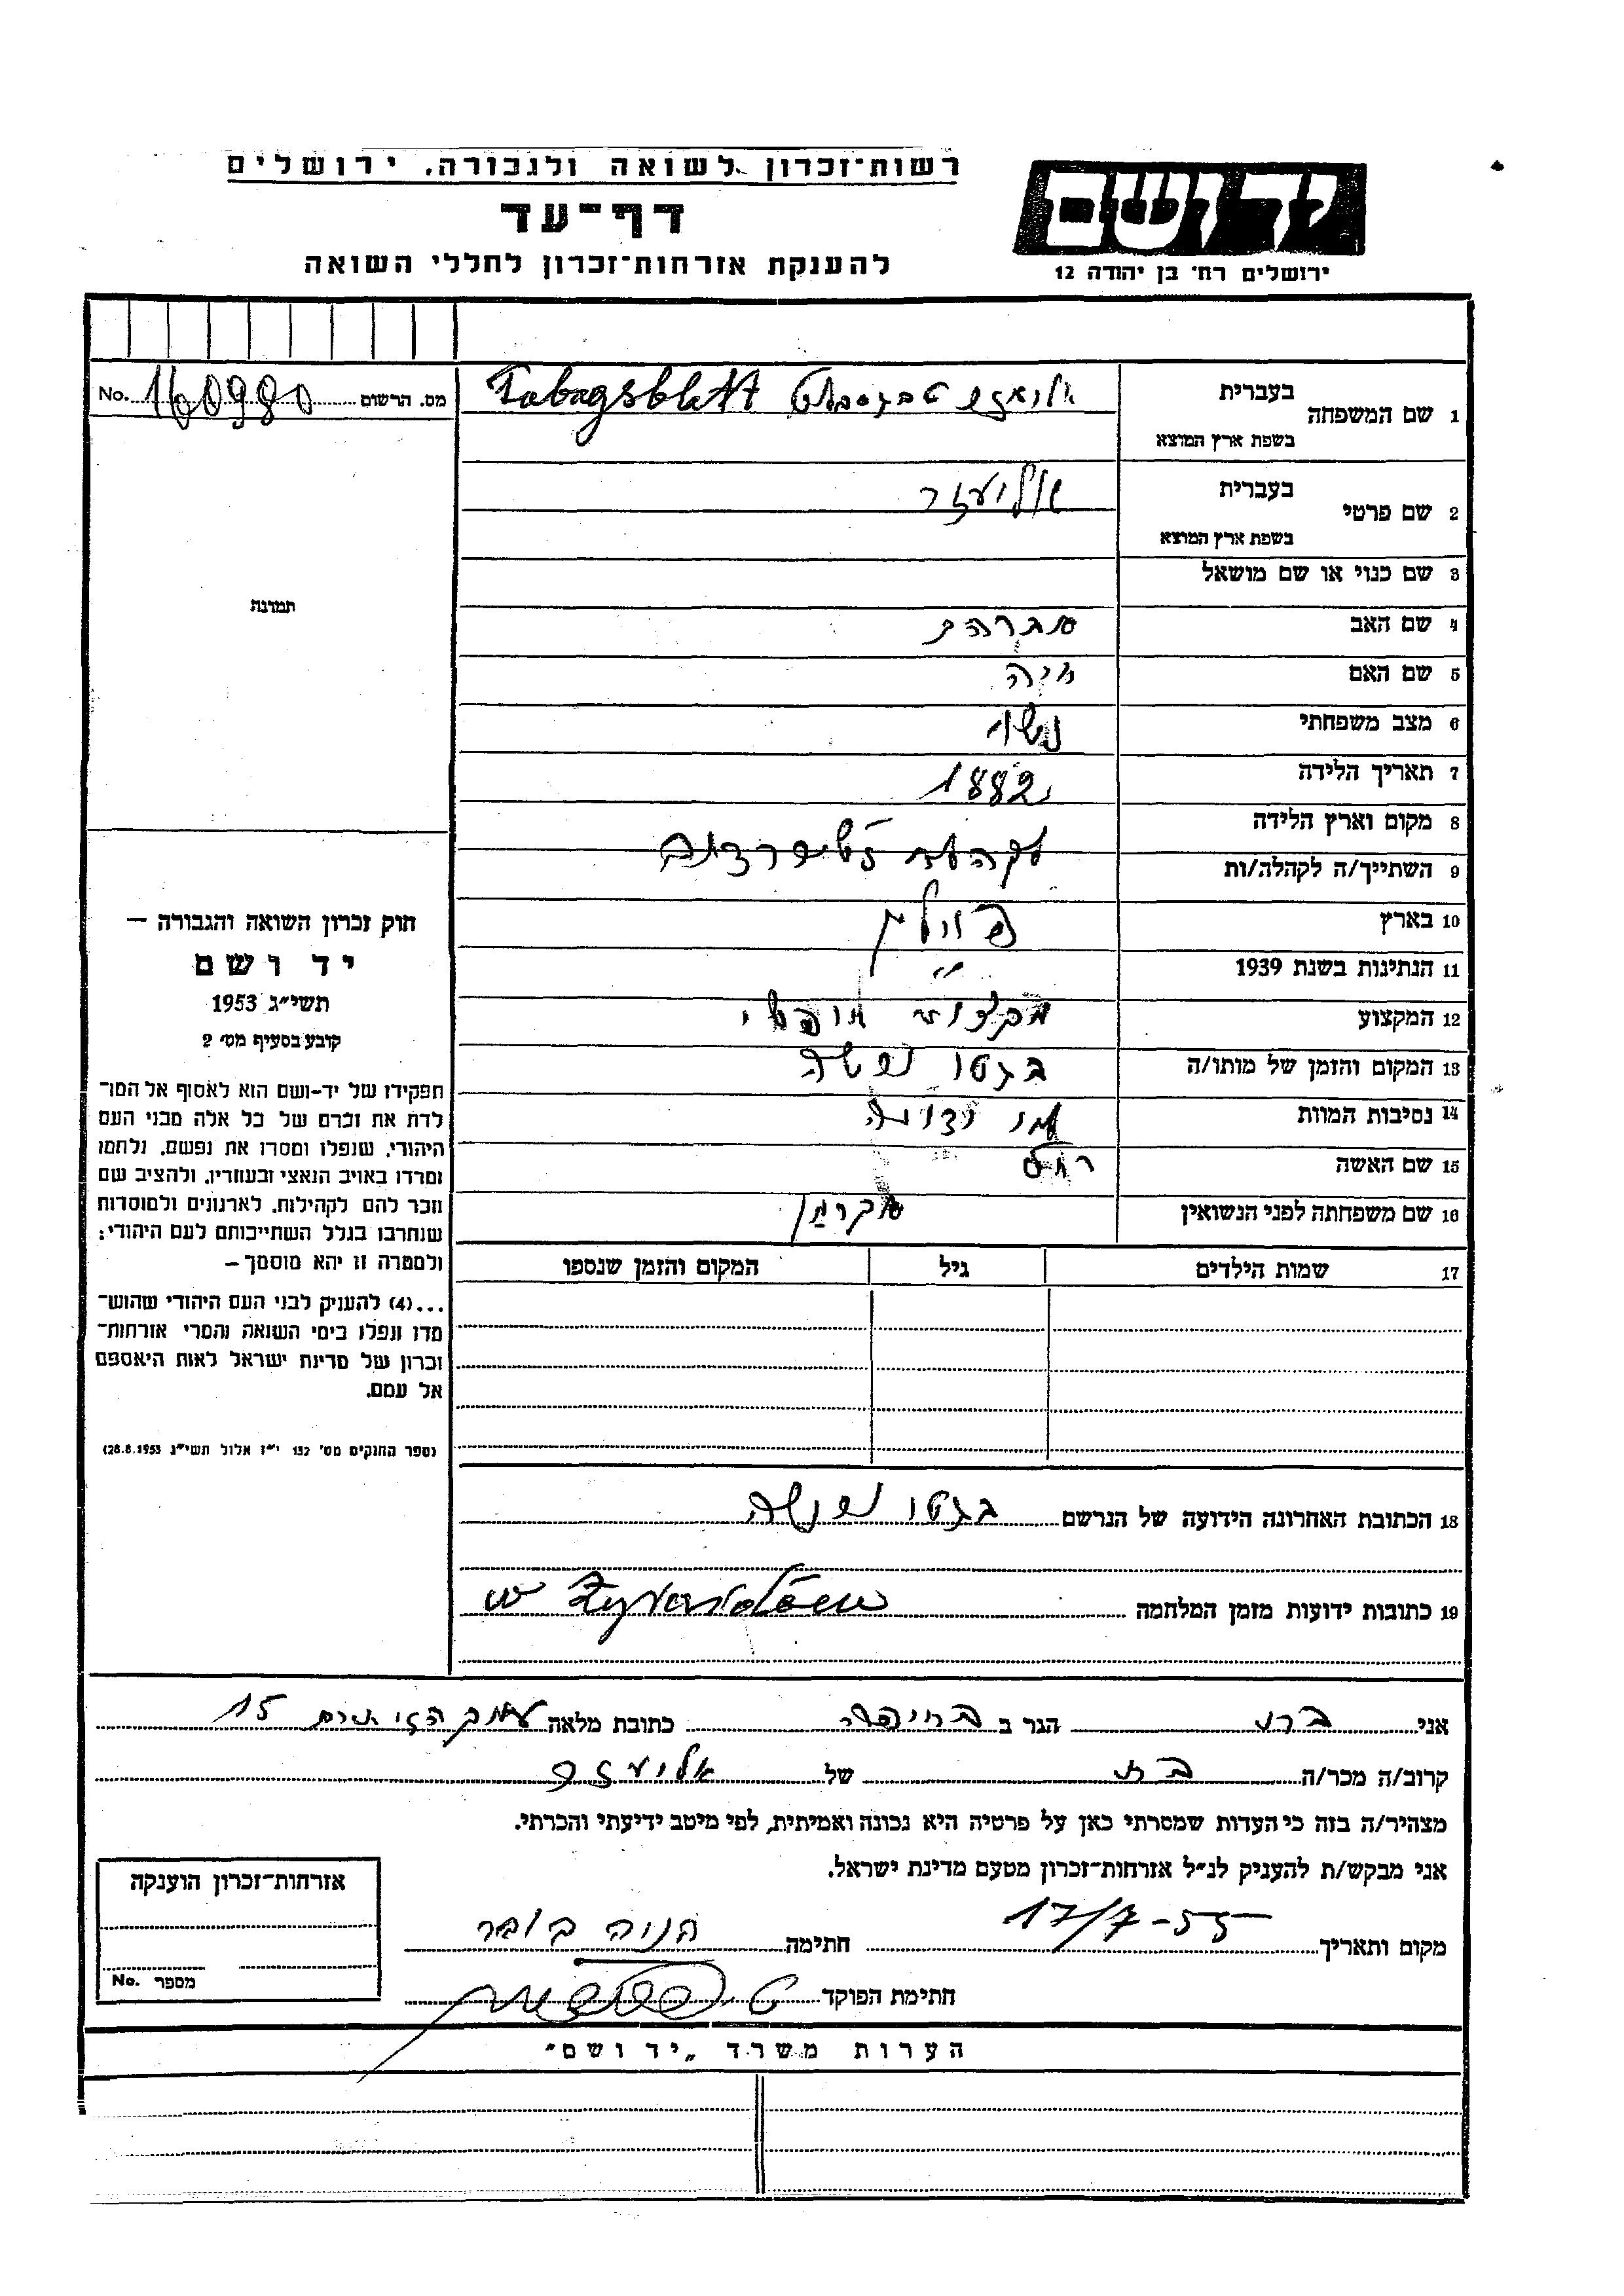 רשות־זכרון לשואה ולגבורה, ירושלים
דף־עד
להענקת אזרחות־זכרון לחללי השואה
יד ושם
ירושלים רח׳ בן יהודה 12
מס. הרשום 160980 No.
תמונה
1 שם המשפחה
בעברית
Tabagsblatt
בשפת ארץ המוצא
2 שם פרטי
בעברית אליעזר
בשפת ארץ המוצא
3 שם כנוי או שם מושאל
4 שם האב אברהם
5 שם האם חיה
6 מצב משפחתי נשוי
7 תאריך הלידה 1882
8 מקום וארץ הלידה
9 השתייך/ה לקהלה/ות
10 בארץ פולין
11 הנתינות בשנת 1939 "
12 המקצוע
13 המקום והזמן של מותו/ה בגטו
14 נסיבות המוות
15 שם האשה רחל
16 שם משפחתה לפני הנשואין
17 שמות הילדים גיל המקום והזמן שנספו
18 הכתובת האחרונה הידועה של הנרשם בגטו
19 כתובות ידועות מזמן המלחמה w
חוק זכרון השואה והגבורה —
יד ושם
תשי״ג 1953
קובע בסעיף מס׳ 2
תפקידו של יד-ושם הוא לאסוף אל המו־
לדת את זכרם של כל אלה מבני העם
היהודי, שנפלו ומסרו את נפשם, נלחמו
ומרדו באויב הנאצי ובעוזריו, ולהציב שם
וזכר להם לקהילות, לארגונים ולמוסדות
שנחרבו בגלל השתייכותם לעם היהודי;
ולמטרה זו יהא מוסמך —
...(4) להעניק לבני העם היהודי שהוש־
מדו ונפלו בימי השואה והמרי אזרחות־
זכרון של מדינת ישראל לאות היאספם
אל עמם.
(ספר החוקים מס׳ 132 י״ז אלול תשי״ג 28.8.1953)
אני הגר ב בחיפה כתובת מלאה 15
קרוב/ה מכר/ה בת של אליעזר
מצהיר/ה בזה כי העדות שמסרתי כאן על פרטיה היא נכונה ואמיתית, לפי מיטב ידיעתי והכרתי.
אני מבקש/ת להעניק לנ״ל אזרחות־זכרון מטעם מדינת ישראל.
מקום ותאריך 17/7-55 חתימה חניה בובר
חתימת הפוקד
אזרחות־זכרון הוענקה
מספר No.
הערות משרד „יד ושם"